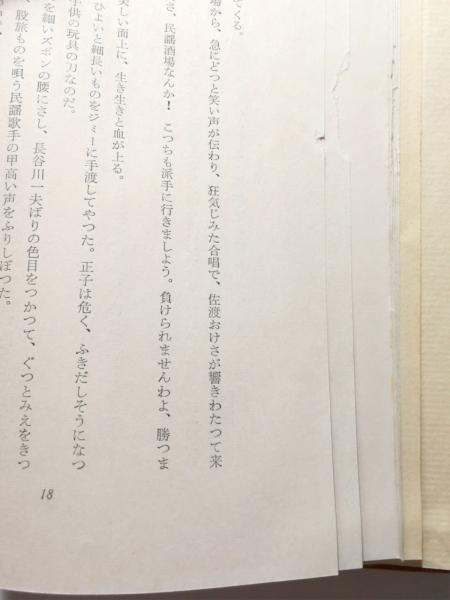 てくる。
場から、急にどっと笑い声が伝わり、狂気じみた合唱で、佐渡おけさが響きわたつて来
さ、民謡酒場なんか！　こっちも派手に行きましよう。負けられませんわよ、勝つま
美しい面上に、生き生きと血が上る。
ひよいと細長いものをジミーに手渡してやつた。正子は危く、ふきだしそうになつ
子供の玩具の刀なのだ。
を細いズボンの腰にさし、長谷川一夫ばりの色目をつかつて、ぐつとみえをきつ
、股旅ものを唄う民謡歌手の甲高い声をふりしぼつた。
18